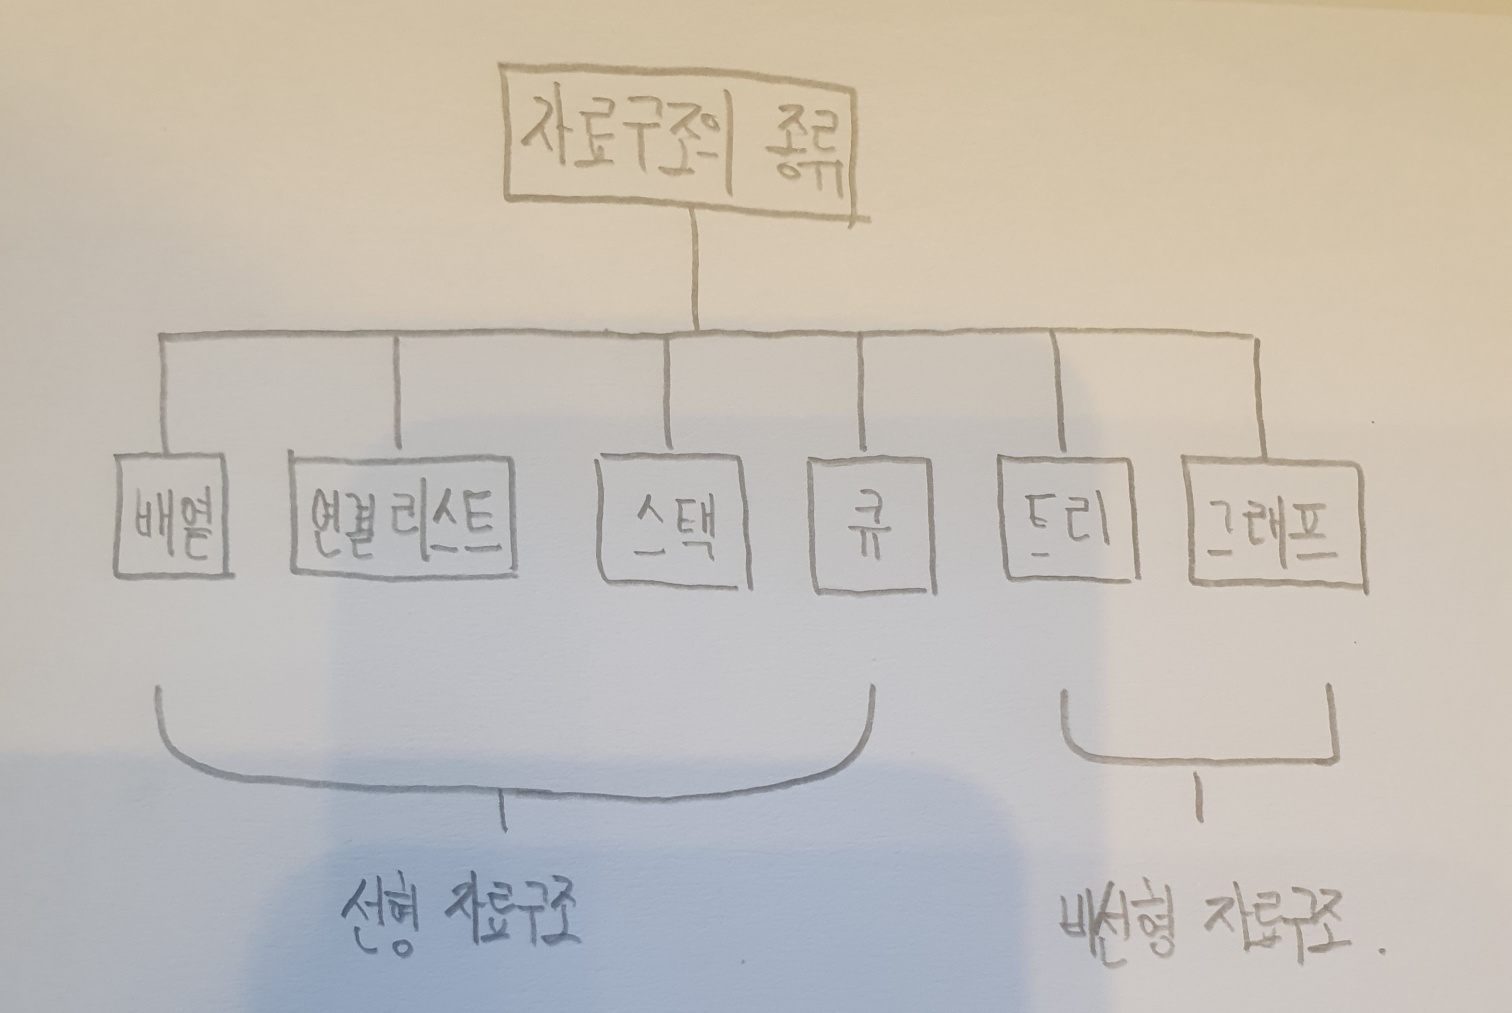 자료구조의 종류
배열 연결리스트 스택 큐 트리 그래프
선형 자료구조 비선형 자료구조.